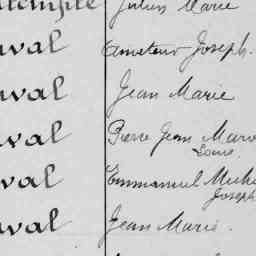 Julien Marie
val Amateur Joseph.
val Jean Marie
val Pierre Jean Marie
Louis
val Emmanuel Miche
Joseph
val Jean Marie.